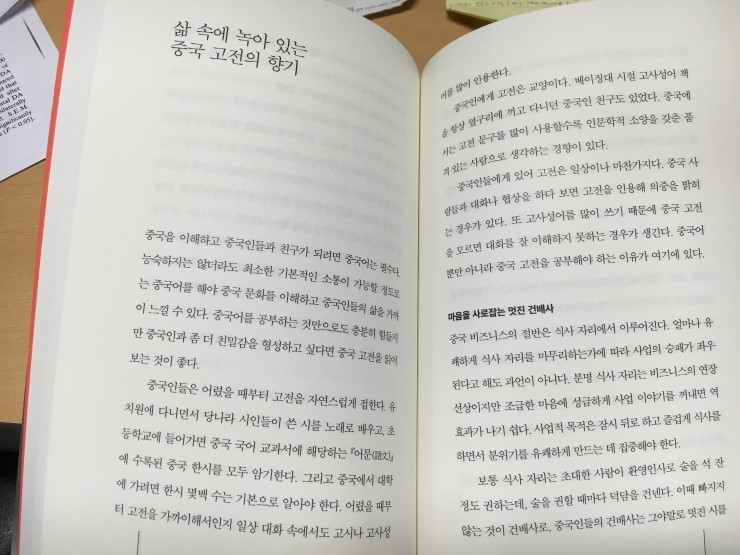 삶 속에 녹아 있는
중국 고전의 향기
중국을 이해하고 중국인들과 친구가 되려면 중국어는 필수다.
능숙하지는 않더라도 최소한 기본적인 소통이 가능할 정도로
는 중국어를 해야 중국 문화를 이해하고 중국인들의 삶을 가까
이 느낄 수 있다. 중국어를 공부하는 것만으로도 충분히 힘들지
만 중국인과 좀 더 친밀감을 형성하고 싶다면 중국 고전을 읽어
보는 것이 좋다.
중국인들은 어렸을 때부터 고전을 자연스럽게 접한다. 유
치원에 다니면서 당나라 시인들이 쓴 시를 노래로 배우고, 초
등학교에 들어가면 중국 국어 교과서에 해당하는 『어문(語文)』
에 수록된 중국 한시를 모두 암기한다. 그리고 중국에서 대학
에 가려면 한시 몇백 수는 기본으로 알아야 한다. 어렸을 때부
터 고전을 가까이해서인지 일상 대화 속에서도 고시나 고사성
어를 많이 인용한다.
중국인에게 고전은 교양이다. 베이징대 시절 고사성어 책
을 항상 옆구리에 끼고 다니던 중국인 친구도 있었다. 중국에
서는 고전 문구를 많이 사용할수록 인문학적 소양을 갖춘 품
격 있는 사람으로 생각하는 경향이 있다.
중국인들에게 있어 고전은 일상이나 마찬가지다. 중국 사
람들과 대화나 협상을 하다 보면 고전을 인용해 의중을 밝히
는 경우가 있다. 또 고사성어를 많이 쓰기 때문에 중국 고전
을 모르면 대화를 잘 이해하지 못하는 경우가 생긴다. 중국어
뿐만 아니라 중국 고전을 공부해야 하는 이유가 여기에 있다.
마음을 사로잡는 멋진 건배사
중국 비즈니스의 절반은 식사 자리에서 이루어진다. 얼마나 유
쾌하게 식사 자리를 마무리하는가에 따라 사업의 승패가 좌우
된다고 해도 과언이 아니다. 분명 식사 자리는 비즈니스의 연장
선상이지만 조급한 마음에 성급하게 사업 이야기를 꺼내면 역
효과가 나기 쉽다. 사업적 목적은 잠시 뒤로 하고 즐겁게 식사를
하면서 분위기를 유쾌하게 만드는 데 집중해야 한다.
보통 식사 자리는 초대한 사람이 환영인사로 술을 석 잔
정도 권하는데, 술을 권할 때마다 덕담을 건넨다. 이때 빠지지
않는 것이 건배사로, 중국인들의 건배사는 그야말로 멋진 시를